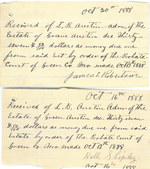 Oct 20th 1888
Received of L.H. Austin adm. of the
Estate of Green Austin dec Thirty
seven & dollars as money due me
from said Est by order of the Probate
Court of Green Co Mo made Oct 18th 1888
James E Robertson
Oct 16th 1888
Received of L.H. Austin Adm of the
Estate of Green Austin dec Thirty seven
& dollars as money due me from said
estate by order of the Probate Court of
Green Co. Mo made Oct 1888
Oct 16th 1888